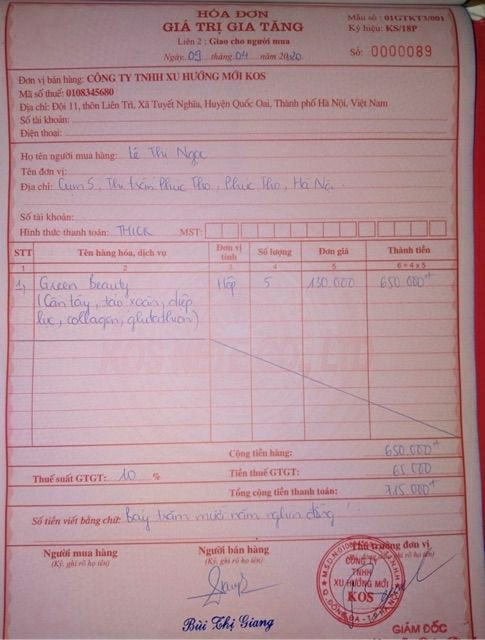 HÓA ĐƠN
GIÁ TRỊ GIA TĂNG
Liên 2 : Giao cho người mua
Ngày 09 tháng 04 năm 2020
Mẫu số : 01GTKT3/001
Ký hiệu: KS/18P
Số: 0000089
Đơn vị bán hàng: CÔNG TY TNHH XU HƯỚNG MỚI KOS
Mã số thuế: 0108345680
Địa chỉ: Đội 11, thôn Liên Trì, Xã Tuyết Nghĩa, Huyện Quốc Oai, Thành phố Hà Nội, Việt Nam
Số tài khoản:
Điện thoại:
Họ tên người mua hàng: Lê Thị Ngọc
Tên đơn vị:
Địa chỉ: Cụm 5, Thị trấn Phúc Thọ, Phúc Thọ, Hà Nội.
Số tài khoản:
Hình thức thanh toán: MST:
STT Tên hàng hóa, dịch vụ Đơn vị tính Số lượng Đơn giá Thành tiền
1 2 3 4 5 6=4x5
1, Green Beauty Hộp 5 130.000 650.000đ
(Cần tây, tảo xoắn, diệp
lục, collagen, glutathion)
Cộng tiền hàng: 650.000đ
Thuế suất GTGT: 10 % Tiền thuế GTGT: 65.000
Tổng cộng tiền thanh toán: 715.000đ
Số tiền viết bằng chữ: Bảy trăm mười năm nghìn đồng
Người mua hàng
(Ký, ghi rõ họ tên)
Người bán hàng
(Ký, ghi rõ họ tên)
Thủ trưởng đơn vị
CÔNG TY
TNHH
XU HƯỚNG MỚI
KOS
Bùi Thị Giang
GIÁM ĐỐC